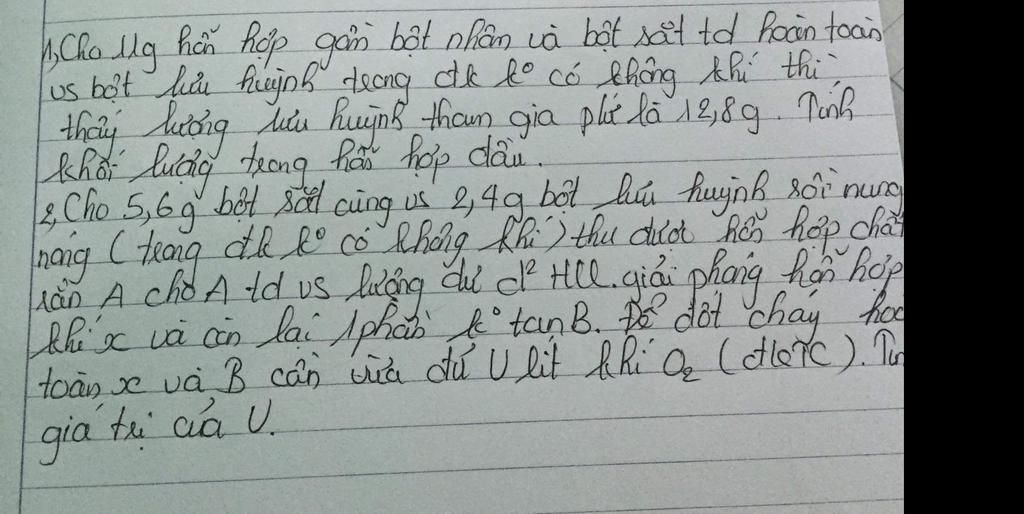 1, Cho 11g hỗn hợp gồm bột nhôm và bột sắt td hoàn toàn
vs bột lưu huỳnh trong đk k° có không khí thì
thấy lượng lưu huỳnh tham gia pứ là 12,8g. Tính
khối lượng trong hỗn hợp đầu.
2, Cho 5,6g bột sắt cùng vs 2,4g bột lưu huỳnh rồi nung
nóng (trong đk k° có không khí) thu được hỗn hợp chất
rắn A cho A td vs lượng dư d² HCl. giải phóng hỗn hợp
khí x và còn lại 1 phần k° tan B. Để đốt cháy hoà
toàn x và B cần vừa đủ V lít khí O₂ (đktc). Tín
giá trị của V.